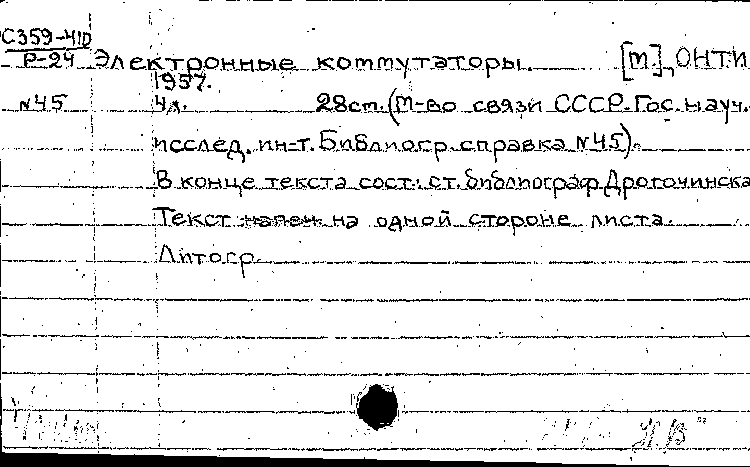 С359-410
Р-24 Электронные коммутаторы. [М.], ОНТИ
1957.
№45 4л. 28см. (М-во связи СССР. Гос. науч.
исслед. ин-т. Библиогр. справка №45).
В конце текста сост.: ст. библиограф Дрогочинска
Текст на одной стороне листа.
Литогр.